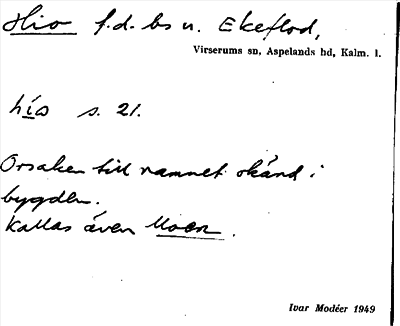 Hio f.d. bs u. Ekeflod,
Virserums sn, Aspelands hd, Kalm. l.
hío s. 21.
Orsaken till namnet okänd i
bygden.
Kallas även Moen.
Ivar Modéer 1949